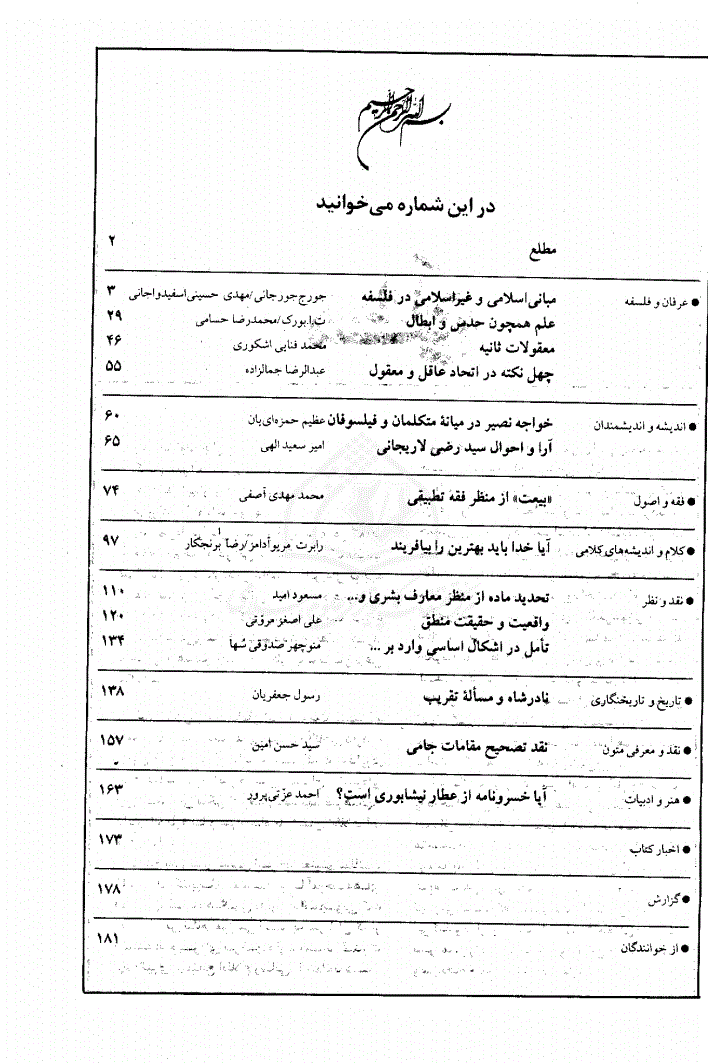 بسم الله الرحمن الرحیم
در این شماره می‌خوانید
مطلع ۲
● عرفان و فلسفه مبانی اسلامی و غیراسلامی در فلسفه جورج جورجانی/مهدی حسینی اسفیدواجانی ۳
علم همچون حدس و ابطال ت.را.بورک/محمدرضا حسامی ۲۹
معقولات ثانیه محمد فنایی اشکوری ۴۶
چهل نکته در اتحاد عاقل و معقول عبدالرضا جمالزاده ۵۵
● اندیشه و اندیشمندان خواجه نصیر در میانهٔ متکلمان و فیلسوفان عظیم حمزه‌ای‌یان ۶۰
آرا و احوال سید رضی لاریجانی امیر سعید الهی ۶۵
● فقه و اصول «بیعت» از منظر فقه تطبیقی محمد مهدی آصفی ۷۴
● کلام و اندیشه‌های کلامی آیا خدا باید بهترین را بیافریند رابرت مریوآدامز/رضا برنجکار ۹۷
● نقد و نظر تحدید ماده از منظر معارف بشری و... مسعود امید ۱۱۰
واقعیت و حقیقت منطق علی اصغر مروتی ۱۲۰
تأمل در اشکال اساسی وارد بر ... منوچهر صدوقی سها ۱۳۴
● تاریخ و تاریخنگاری نادرشاه و مسألهٔ تقریب رسول جعفریان ۱۳۸
● نقد و معرفی متون نقد تصحیح مقامات جامی سید حسن امین ۱۵۷
● هنر و ادبیات آیا خسرونامه از عطار نیشابوری است؟ احمد عزتی‌پرور ۱۶۳
● اخبار کتاب ۱۷۳
● گزارش ۱۷۸
● از خوانندگان ۱۸۱